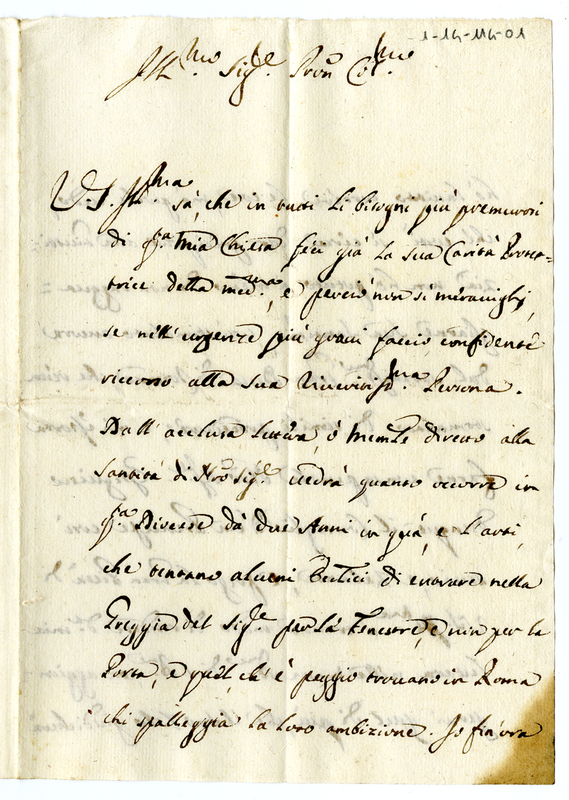 1-14-114-01
Ill.mo Sig.re Pron Col.mo
V.S. Ill.ma sà, che in tutti li bisogni più premurosi
di q.ta mia Chiesa feci già la sua Carità Protet=
trice della med.ma, e perciò non si meravigli,
se nell'urgenze più gravi faccio confidente
ricorso alla sua Riveritiss.ma Persona.
Dall'acclusa lettera, ò mem.le diretto alla
Santità di Nro Sig.re vedrà quanto occorre in
q.ta Diocese dà due Anni in quà, e l'arti,
che tentano alcuni di entrare nella
Greggia del Sig.re per la fenestre, e non per la
Porta, e quel, ch'è peggio trovano in Roma
chi spalleggia la loro ambizione. Io fin'ora